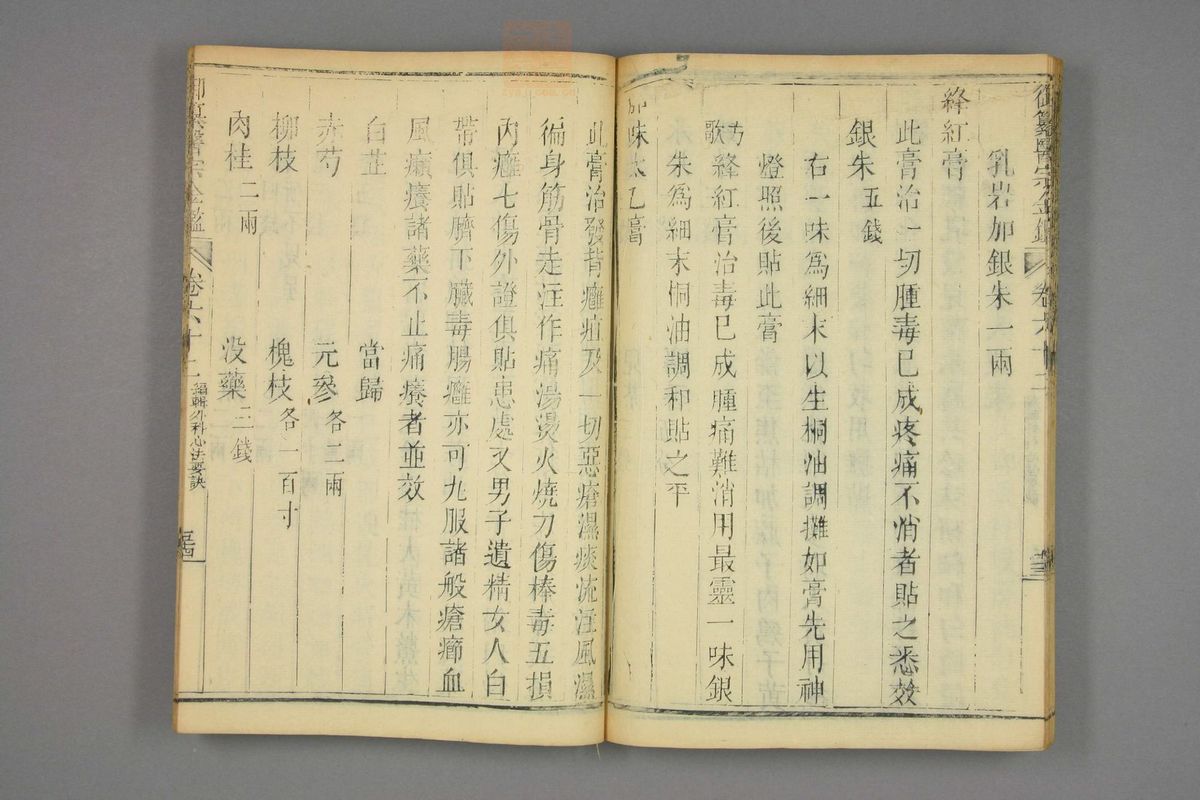 御纂醫宗金鑑 卷六十二
乳岩加銀朱一兩
絳紅膏
此膏治一切腫毒已成疼痛不消者貼之悉效
銀朱五錢
右一味爲細末以生桐油調攤如膏先用神
燈照後貼此膏
方歌絳紅膏治毒已成腫痛難消用最靈一味銀
朱爲細末桐油調和貼之平
加味太乙膏
此膏治發背癰疽及一切惡瘡濕痰流注風濕
徧身筋骨走注作痛湯燙火燒刀傷棒毒五損
內癰七傷外證俱貼患處又男子遺精女人白
帶俱貼臍下臟毒腸癰亦可丸服諸般瘡癤血
風癩癢諸藥不止痛癢者並效
白芷 當歸
赤芍 元參各二兩
柳枝 槐枝各一百寸
肉桂二兩 没藥三錢
御纂醫宗金鑑 卷六十二 編輯外科心法要訣